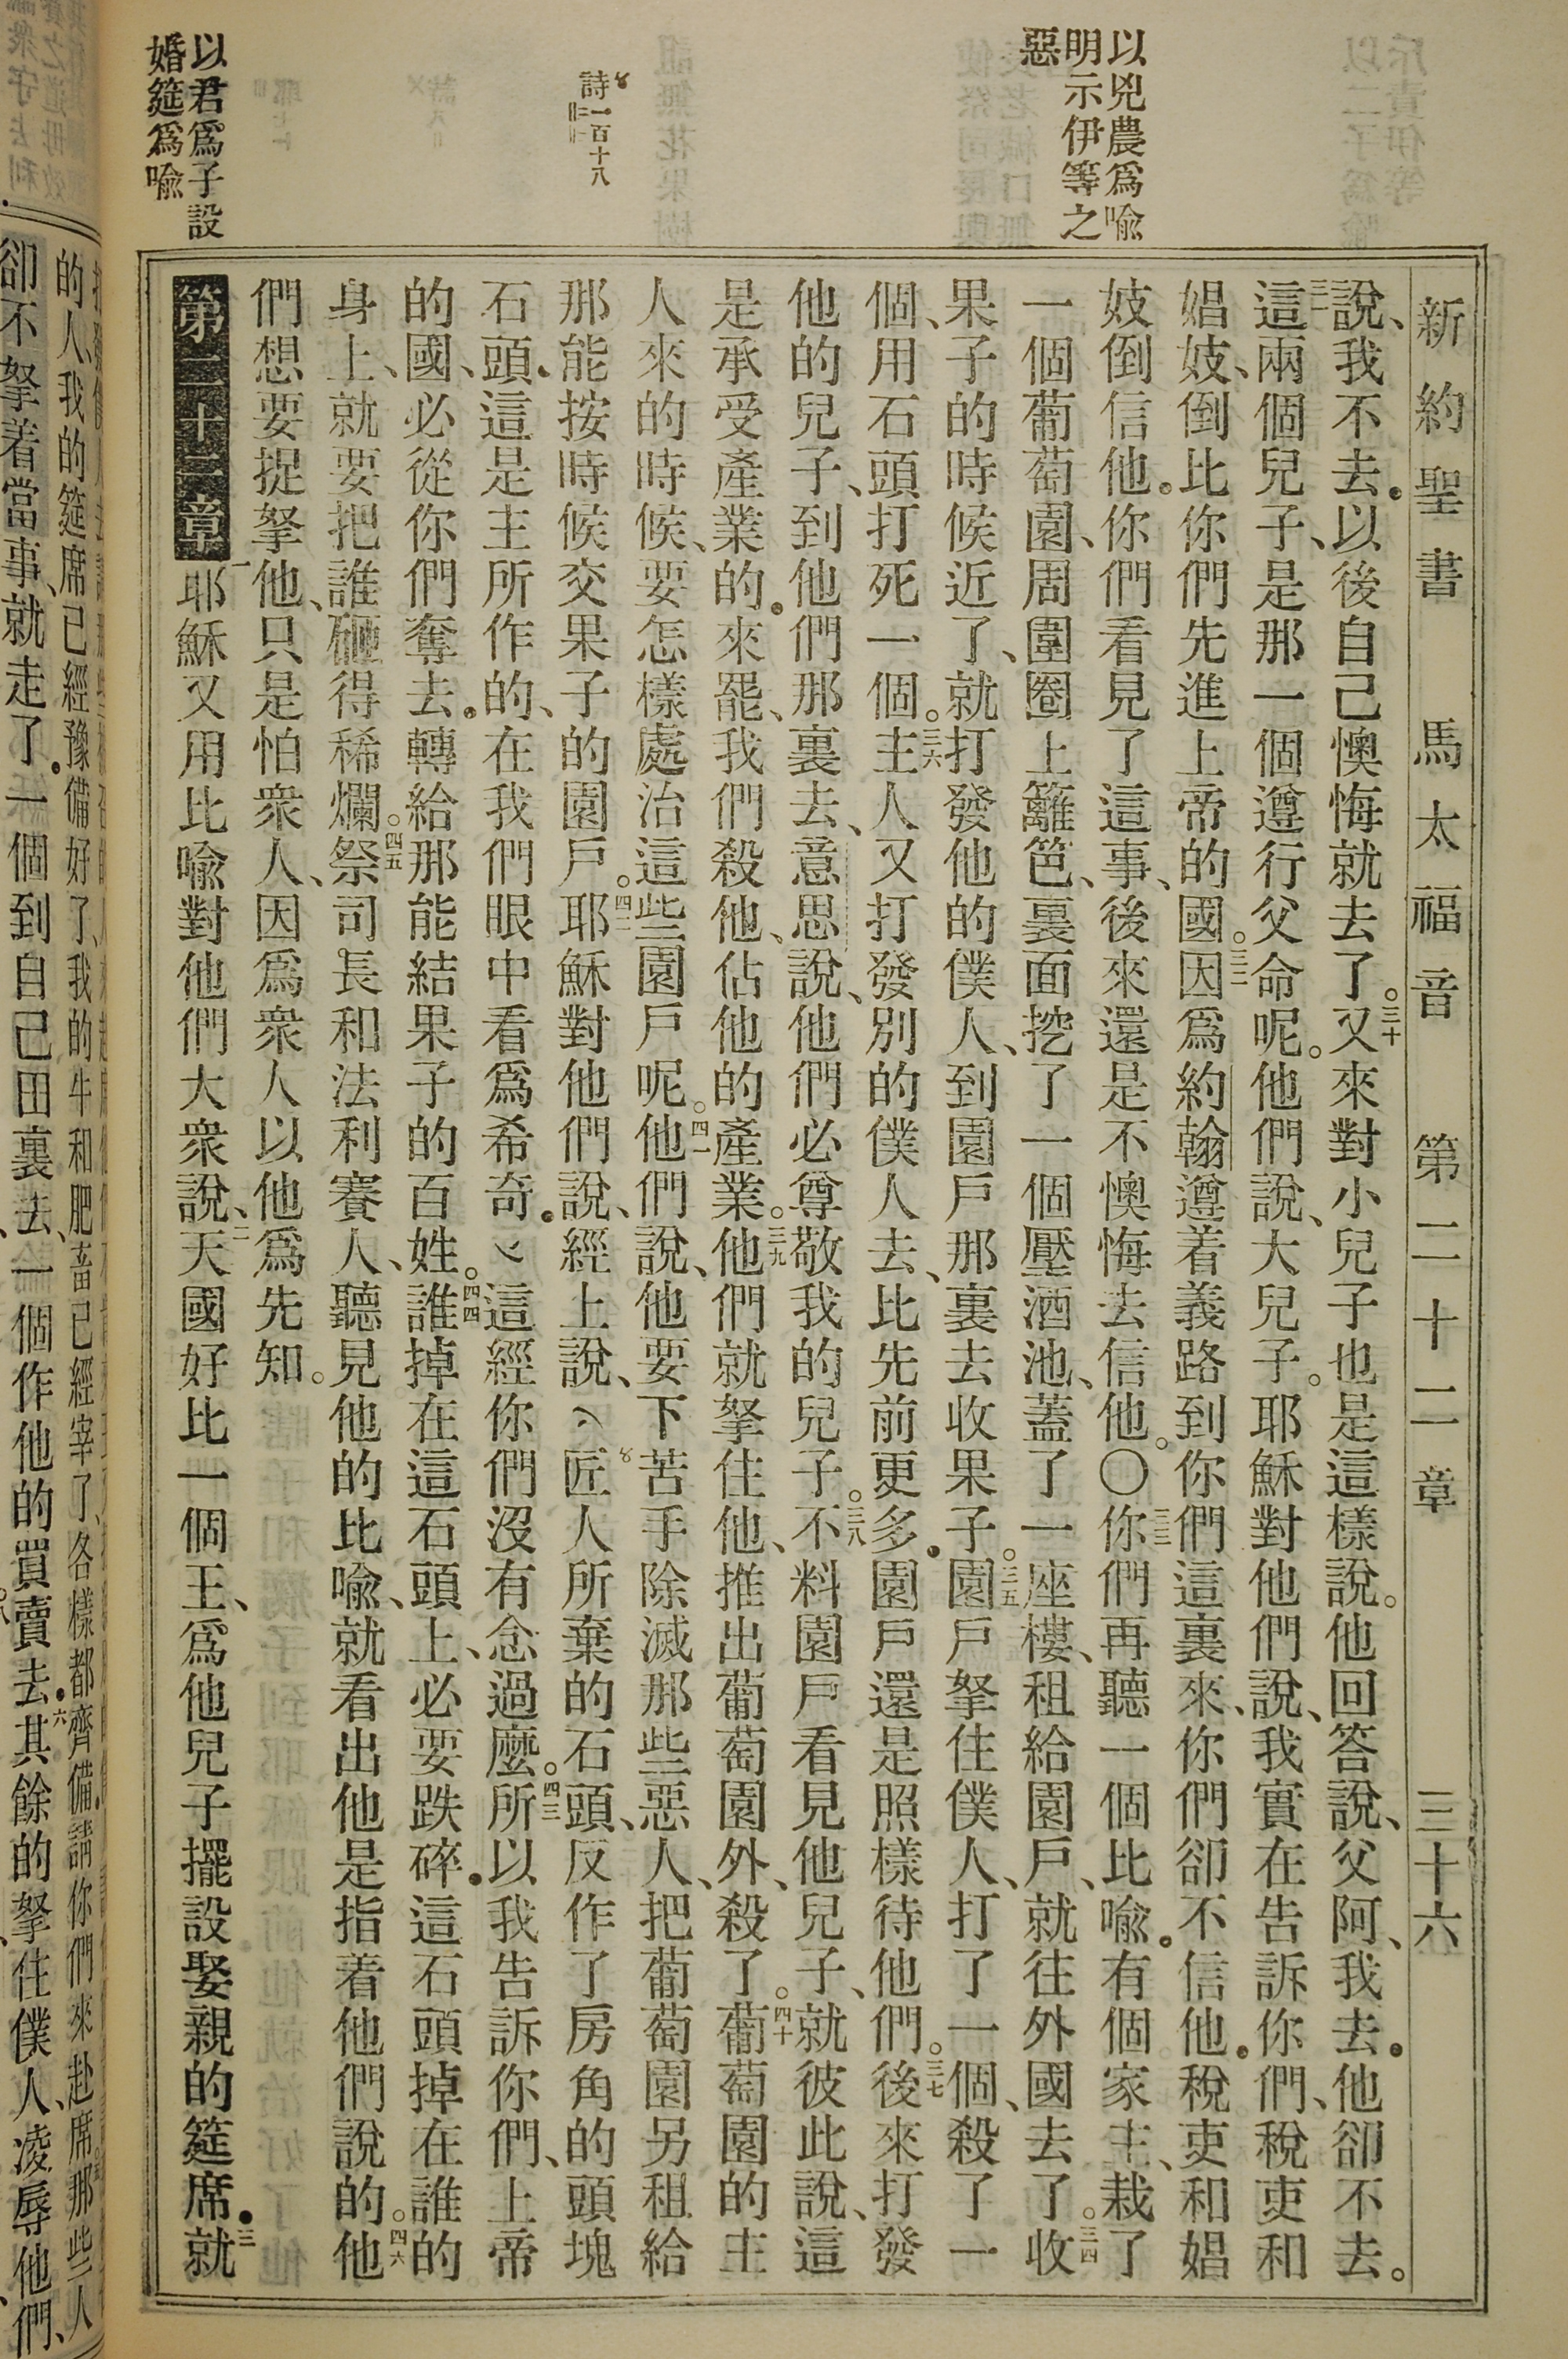 新約聖書 馬太福音 第二十二章 三十六
以兇農爲喩
明示伊等之
惡
詩一百十八
以君爲子設
婚筵爲喩
說、我不去.以後自己懊悔就去了。三十又來對小兒子也是這樣說。他回答說、父阿、我去.他卻不去。
三一這兩個兒子、是那一個遵行父命呢。他們說、大兒子。耶穌對他們說、我實在告訴你們、稅吏和
娼妓、倒比你們先進上帝的國。三二因爲約翰遵着義路到你們這裏來、你們卻不信他.稅吏和娼
妓倒信他。你們看見了這事、後來還是不懊悔去信他。〇三三你們再聽一個比喩.有個家主、栽了
一個葡萄園、周圍圈上籬笆、裏面挖了一個壓酒池、蓋了一座樓、租給園戶、就往外國去了。三四收
果子的時候近了、就打發他的僕人、到園戶那裏去收果子。三五園戶拏住僕人、打了一個、殺了一
個、用石頭打死一個。三六主人又打發別的僕人去、比先前更多.園戶還是照樣待他們。三七後來打發
他的兒子、到他們那裏去、意思說、他們必尊敬我的兒子。三八不料園戶看見他兒子、就彼此說、這
是承受產業的.來罷、我們殺他、佔他的產業。三九他們就拏住他、推出葡萄園外、殺了。四十葡萄園的主
人來的時候、要怎樣處治這些園戶呢。四一他們說、他要下苦手除滅那些惡人、把葡萄園另租給
那能按時候交果子的園戶。四二耶穌對他們說、經上說、匠人所棄的石頭、反作了房角的頭塊
石頭.這是主所作的、在我們眼中看爲希奇.這經你們沒有念過麼。四三所以我告訴你們、上帝
的國、必從你們奪去.轉給那能結果子的百姓。四四誰掉在這石頭上、必要跌碎.這石頭掉在誰的
身上、就要把誰砸得稀爛。四五祭司長和法利賽人、聽見他的比喩、就看出他是指着他們說的。四六他
們想要捉拏他、只是怕衆人、因爲衆人以他爲先知。
第二十二章 一耶穌又用比喩對他們大衆說、二天國好比一個王、爲他兒子擺設娶親的筵席.三就
的人、我的筵席已經豫備好了、我的牛和肥畜已經宰了、各樣都齊備.請你們來赴席.那些人
卻不拏着當事、就走了.一個到自己田裏去、一個作他的買賣去.六其餘的拏住僕人、凌辱他們、